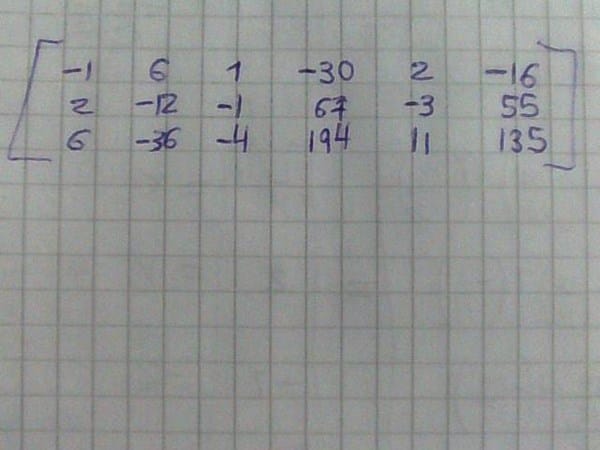 -1 6 1 -30 2 -16
2 -12 -1 67 -3 55
6 -36 -4 194 11 135